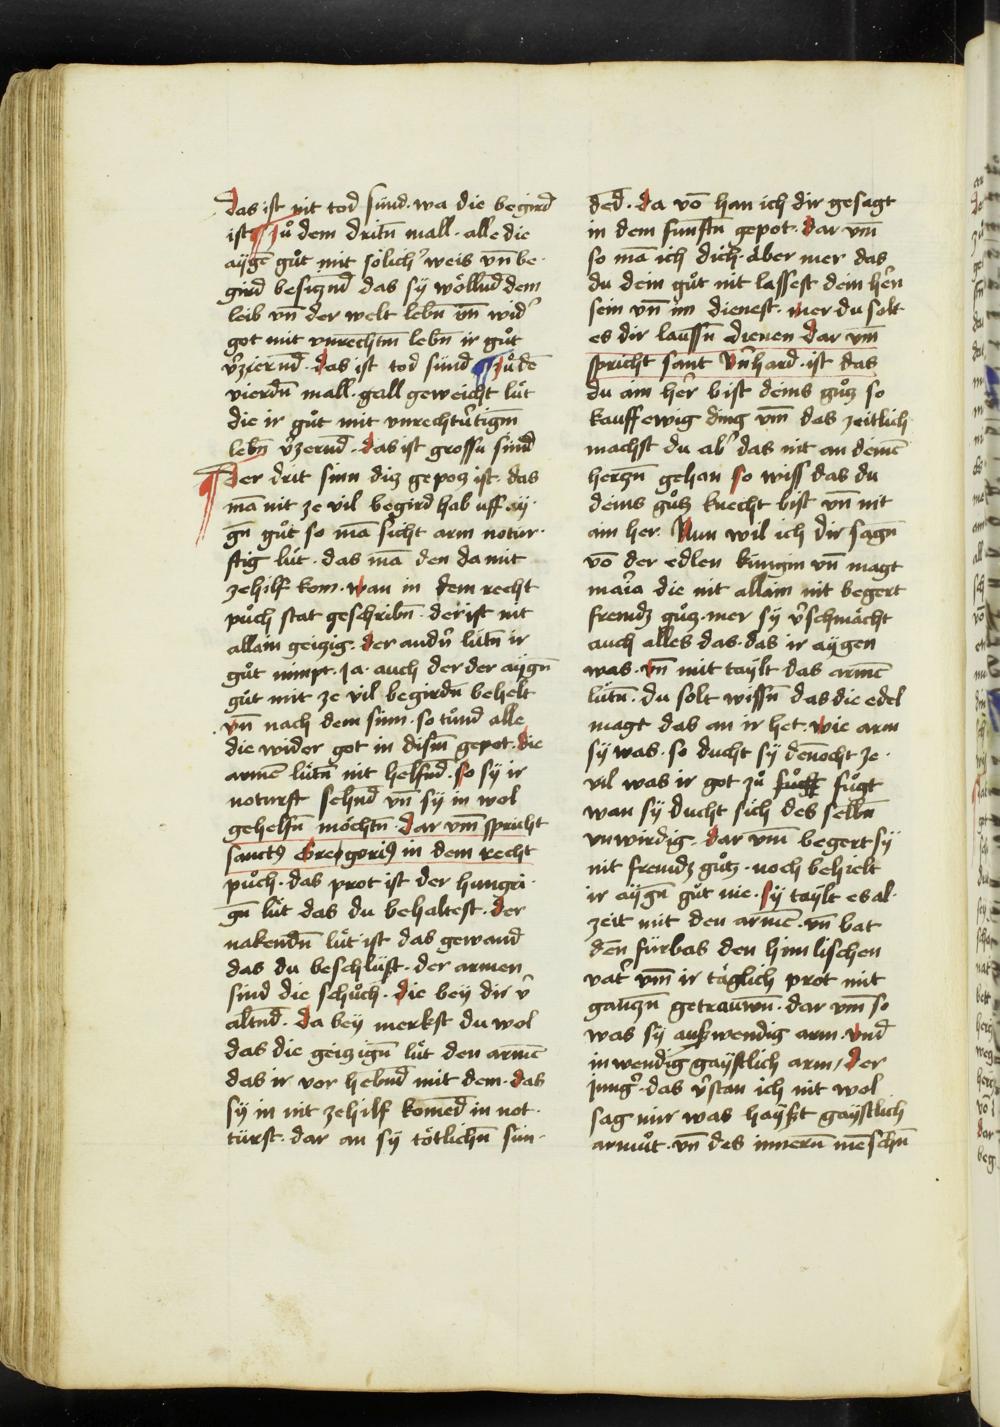 das ist nit tod sünd. wa die begird
ist ¶ zů dem dritñ mall. alle die
aygẽ gůt mit sölich̓ weis vñ be-
gird besiznd̃ das sy wöllnd̃ dem
leib vñ der welt lebñ vñ wid̓
got mit vnrechtm̃ lebñ ir gůt
v̓ziernd̃. das ist tod sünd ¶ zů dẽ
vierdñ mall. gall geweicht lüt
die ir gůt mit vnrechtv̓tigm̃
lebñ v̓zernd̃. das ist grossu sünd̃
¶ Der drit sinn diz gepoz ist. das
mã nit ze vil begird hab uff ay-
gñ gůt so mã sicht arm notur-
ftig lüt. das mã den da mit
zehilf kom. wan in dem recht
půch stat geschribñ. der ist nit
allain geizig. der andr̓ lütñ ir
gůt nimpt. Ja. auch der der aygñ
gůt mit ze vil begirdñ behelt
vñ nach dem sinn. so tůnd alle
die wider got in dism̃ gepot. die
armẽ lütñ nit helfnd̃. so sy ir
noturft sehnd̃ vñ sy in wol
gehelfñ möchtñ. dar vm̃ spricht
sanctꝰ Gregoriꝰ in dem recht
půch. das prot ist der hungri-
gñ lüt das du behaltest. der
nakendñ lüt ist das gewand
das du beschlüst. der armen
sind die schůch. die bey dir v̓
altnd̃. da bey merkst du wol
das die geizigñ lüt den armẽ
das ir vor hebnd̃ mit dem. das
sy in nit zehilf komẽd in not-
türft. dar an sy tötlichñ sün-
ded̃. da võ han ich dir gesagt
in dem fünftñ gepot. dar vm̃
so mã ich dich. aber mer das
du dein gůt nit lassest dein hẽrn
sein vñ im dienest. mer du solt
es dir laussñ dienen dar vm̃
spricht sant b̓nhard. ist das
du ain her̓ bist deins gůz so
kauff ewig ding vm̃ das zeitlich
machst du ab̓ das nit an deinẽ
herzñ gehan so wiss das du
deins gůz knecht bist vñ nit
ain her. Nun wil ich dir sagñ
võ der edlen küngin vñ magt
mar̓ia die nit allain nit begert
fremdz gůz. mer sy v̓schmächt
auch alles das. das ir aygen
was. vñ mit taylt das armẽ
lütñ. du solt wissñ das die edel
magt das an ir het. wie arm
sy was. so ducht sy deñocht ze-
vil was ir got zů fůgt
wan sy ducht sich des selbñ
vnwirdig. dar vm̃ begert sy
nit fremdz gůtz. noch behielt
ir aygñ gůt nie. sy taylt es al-
zeit mit den armẽ. vñ bat
deñ fürbas den himlischen
vat̓ vm̃ ir täglich prot mit
ganzñ getrauwñ. dar vm̃ so
was sy auszwendig arm. vnd̃
inwendig gaystlich arm / der
Jung̓. das v̓stan ich nit wol
sag mir was hayst gaystlich
armůt. vñ des innerñ mẽschñ